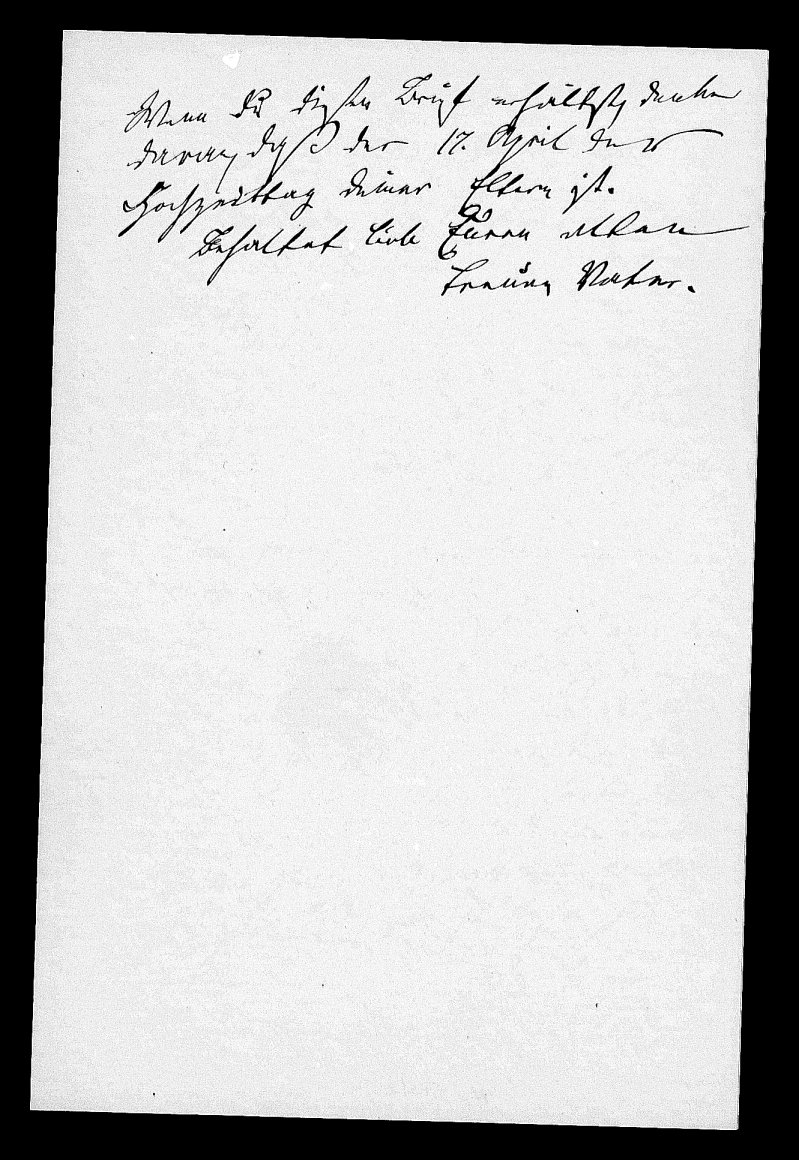 Wenn Du diesen Brief erhältst, denke
daran, daß der 17. April der
Hochzeittag Deiner Eltern ist.
Behaltet lieb Euren alten
treuen Vater.